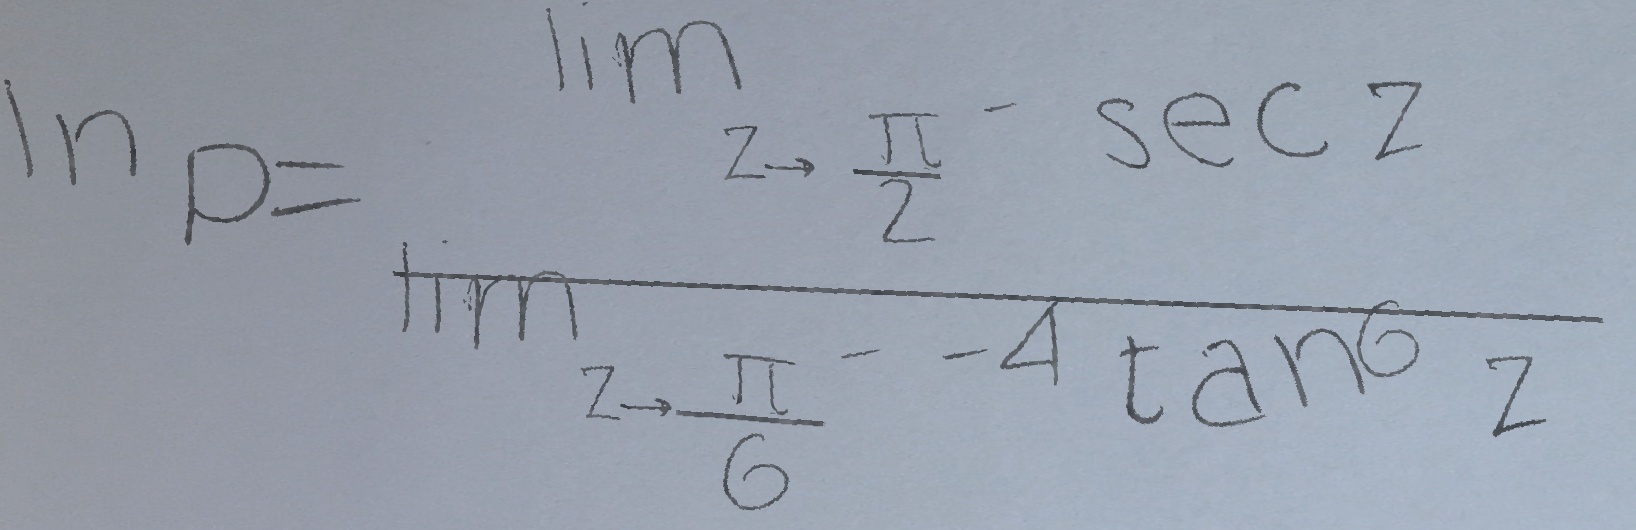 ln p = \frac{\lim_{z \to \frac{\pi}{2}^{-}} \sec z}{\lim_{z \to \frac{\pi}{6}^{-}} -4 \tan^{6} z}